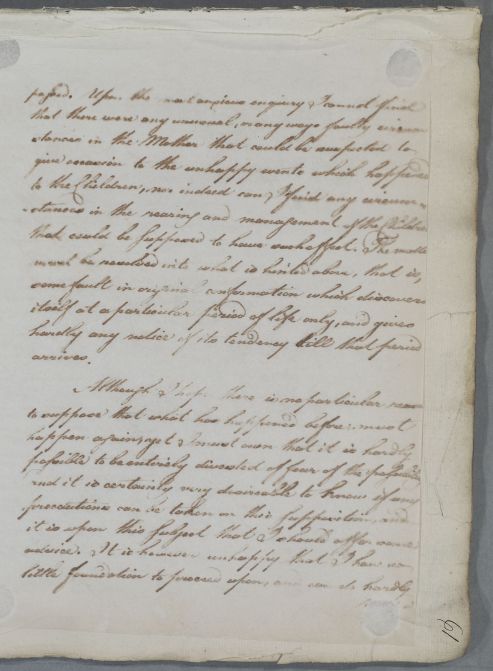 passed. Upon the most anxious enquiry I cannot find
that there were any unusual, or any ways faulty circum
stances in the Mother that could be suspected to
give occasion to the unhappy events which happened
to the Children, nor indeed can I find any circum-
stances in the rearing and management of the Children
that could be supposed to have such effect. The matter
must be resolved into what is hinted above, that is,
some fault in original conformation which discovers
itself at a particular period of life only, and gives
hardly any notice of its tendency till that period
arrives.
Although I hope there is no particular reason
to suppose that what has happened before must
happen again, yet I must own that it is hardly
possible to be entirely divested of fear of the
and it is certainly very desireable to know if any
precautions can be taken on this supposition, and
it is upon this subject that I should offer some
advice. It is however unhappy that I have so
little foundation to proceed upon, and can do hardly
61